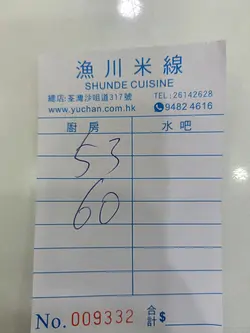 漁川米線
SHUNDE CUISINE
總店:荃灣沙咀道317號 TEL:26142628
www.yuchan.com.hk 9482 4616
廚房 水吧
53
60
No. 009332 合計 $